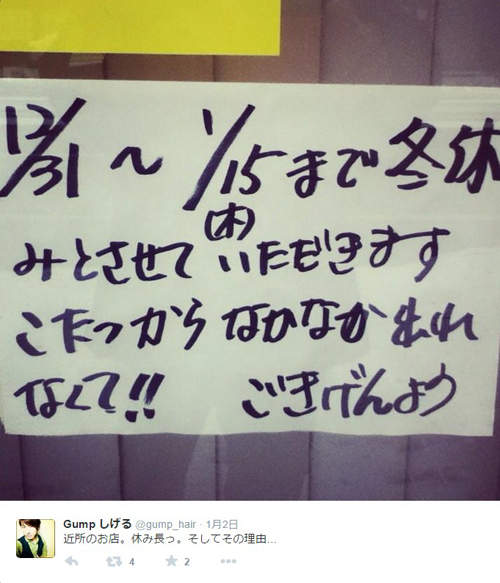 12/31〜1/15まで冬休
(木)
みとさせていただきます
こたつからなかなか出れ
なくて!! ごきげんよう
Gump しげる @gump_hair · 1月2日
近所のお店。休み長っ。そしてその理由...
4 2